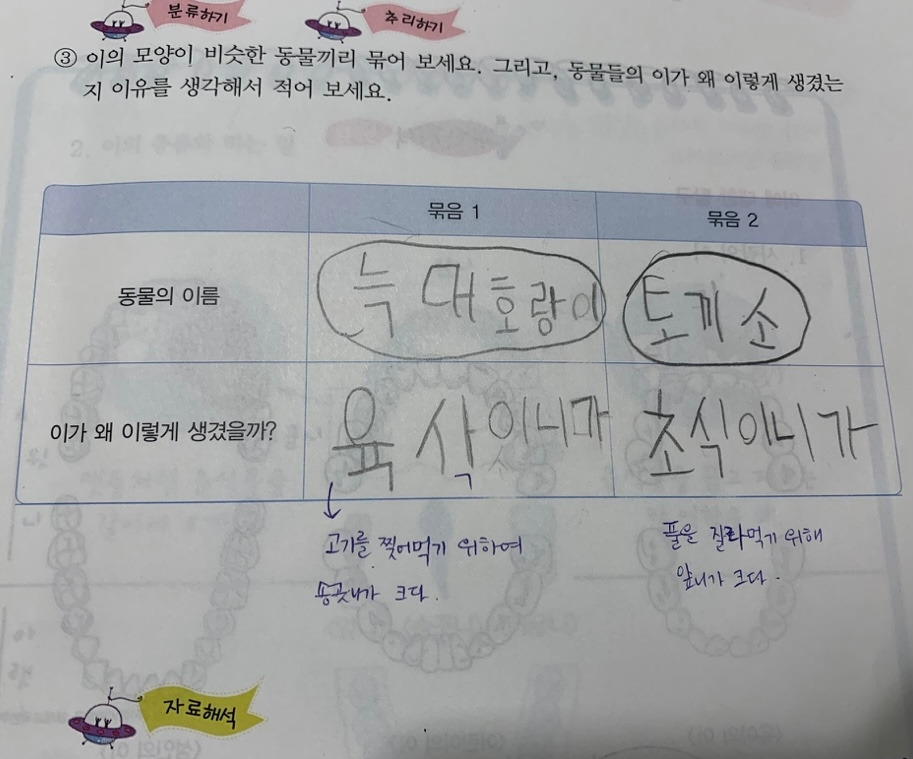 분류하기
추리하기
③ 이의 모양이 비슷한 동물끼리 묶어 보세요. 그리고, 동물들의 이가 왜 이렇게 생겼는
지 이유를 생각해서 적어 보세요.
묶음 1
묶음 2
동물의 이름
늑대 호랑이
토끼 소
이가 왜 이렇게 생겼을까?
육식이니까
초식이니까
고기를 찢어먹기 위하여
송곳니가 크다.
풀을 잘라먹기 위해
앞니가 크다.
자료해석